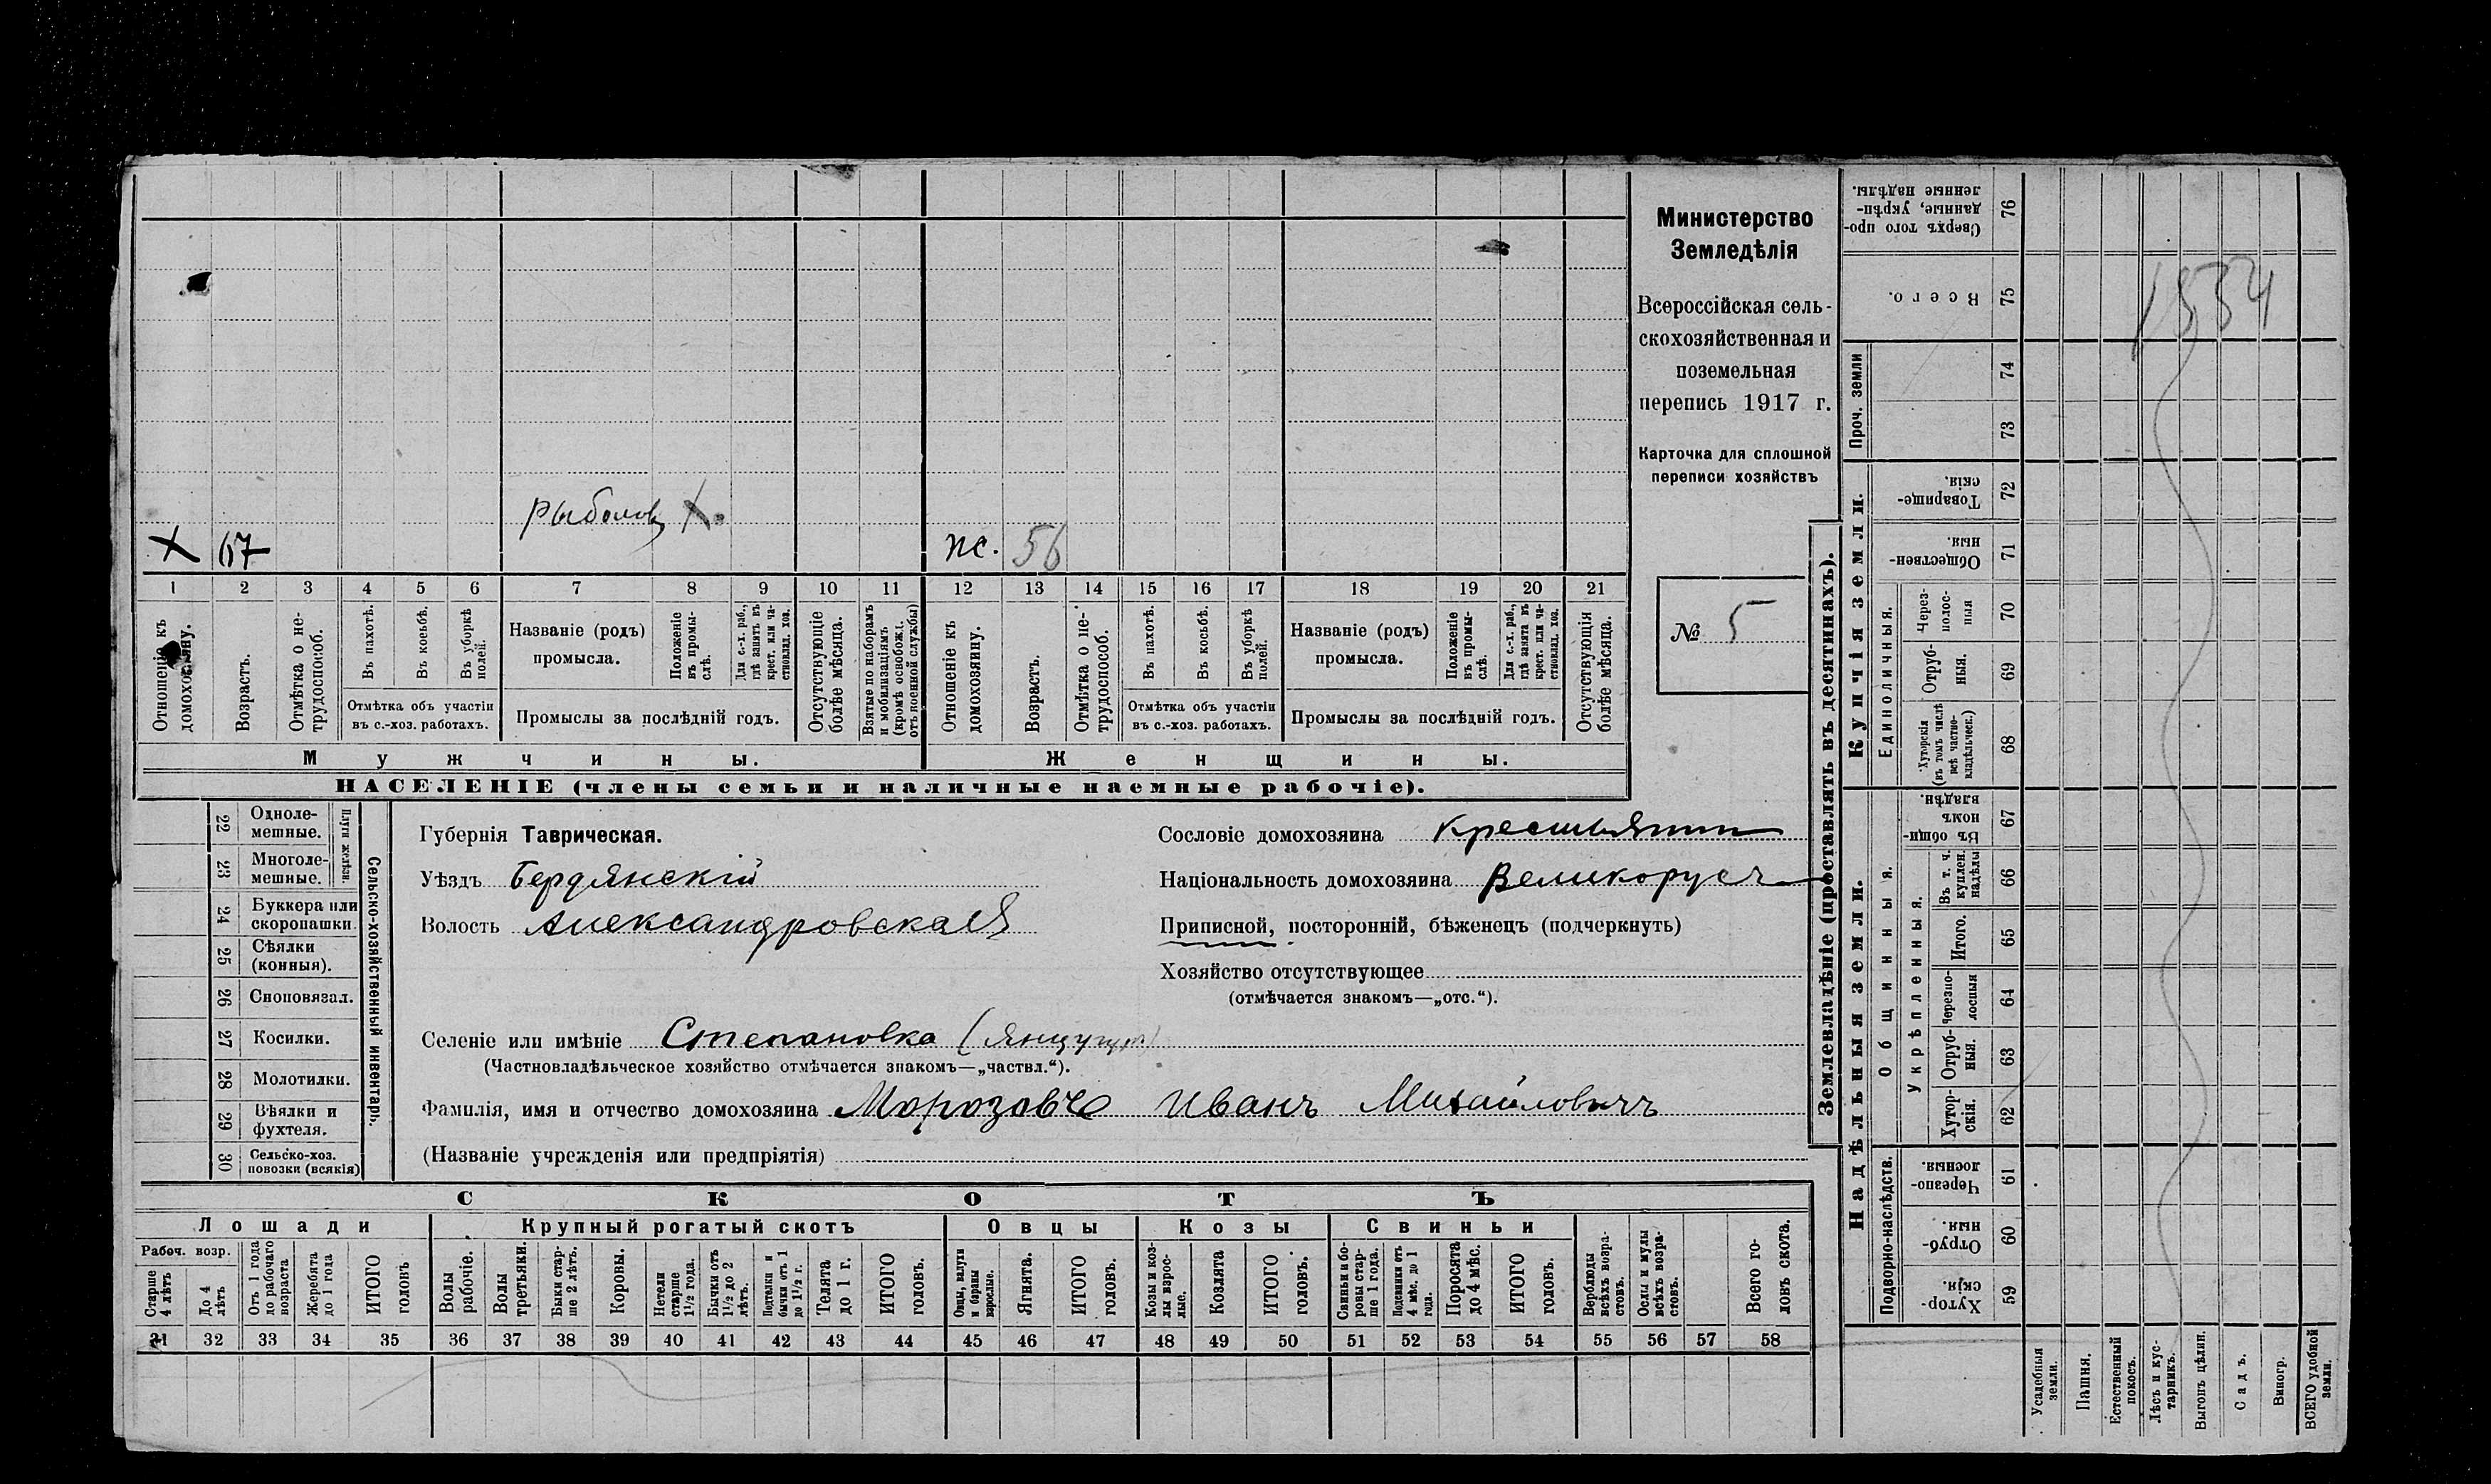 Министерство
Земледѣлія
Всероссійская сель-
скохозяйственная и
поземельная
перепись 1917 г.
Карточка для сплошной
переписи хозяйствъ
№ 5
рыболов X.
X 67
пс. 56
1 2 3 4 5 6 7 8 9 10 11 12 13 14 15 16 17 18 19 20 21
Отношеніе къ домохозяину.
Возрастъ.
Отмѣтка о не-трудоспособ.
Въ пахотѣ.
Въ косьбѣ.
Въ уборкѣ полей.
Отмѣтка объ участіи
въ с.-хоз. работахъ.
Названіе (родъ)
промысла.
Положеніе въ промы-слѣ.
Для с.-х. раб., гдѣ занятъ въ крест. или ча-стновлад. хоз.
Промыслы за послѣдній годъ.
Отсутствующіе болѣе мѣсяца.
Взятые по наборамъ и мобилизаціямъ (кромѣ освобожд. отъ военной службы)
Отношеніе къ домохозяину.
Возрастъ.
Отмѣтка о не-трудоспособ.
Въ пахотѣ.
Въ косьбѣ.
Въ уборкѣ полей.
Отмѣтка объ участіи
въ с.-хоз. работахъ.
Названіе (родъ)
промысла.
Положеніе въ промы-слѣ.
Для с.-х. раб., гдѣ занята въ крест. или ча-стновлад. хоз.
Промыслы за послѣдній годъ.
Отсутствующія болѣе мѣсяца.
Мужчины.
Женщины.
НАСЕЛЕНІЕ (члены семьи и наличные наемные рабочіе).
Сельско-хозяйственный инвентарь.
Плуги желѣзн.
22 Одноле-мешные.
23 Многоле-мешные.
24 Буккера или скоропашки.
25 Сѣялки (конныя).
26 Сноповязал.
27 Косилки.
28 Молотилки.
29 Вѣялки и фухтеля.
30 Сельско-хоз. повозки (всякія)
Губернія Таврическая.
Уѣздъ Бердянскій
Волость Александровская
Сословіе домохозяина Крестьянин
Національность домохозяина Великорусъ
Приписной, посторонній, бѣженецъ (подчеркнуть)
Хозяйство отсутствующее
(отмѣчается знакомъ—„отс.“).
Селеніе или имѣніе Степановка
(Частновладѣльческое хозяйство отмѣчается знакомъ—„частвл.“).
Фамилія, имя и отчество домохозяина Иванъ Михайловичъ
(Названіе учрежденія или предпріятія)
СКОТЪ
Лошади Крупный рогатый скотъ Овцы Козы Свиньи
Рабоч. возр.
Старше 4 лѣтъ
До 4 лѣтъ
Отъ 1 года до рабочаго возраста
Жеребята до 1 года
ИТОГО головъ
Волы рабочіе.
Волы третьяки.
Быки стар-ше 2 лѣтъ.
Коровы.
Нетели старше 1 1/2 года.
Бычки отъ 1 1/2 до 2 лѣтъ.
Подтелки и бычки отъ 1 до 1 1/2 г.
Телята до 1 г.
ИТОГО головъ.
Овцы, валухи и бараны взрослые.
Ягнята.
ИТОГО головъ.
Козы и коз-лы взрос-лые.
Козлята
ИТОГО головъ.
Свиньи и бо-ровы стар-ше 1 года.
Подсвинки отъ 4 мѣс. до 1 года.
Поросята до 4 мѣс.
ИТОГО головъ.
Верблюды всѣхъ возра-стовъ.
Ослы и мулы всѣхъ возра-стовъ.
Всего го-ловъ скота.
31 32 33 34 35 36 37 38 39 40 41 42 43 44 45 46 47 48 49 50 51 52 53 54 55 56 57 58
Землевладѣніе (проставлять въ десятинахъ).
Сверхъ того про-данные, укрѣп-ленные надѣлы. 76
Всего. 75
Проч. земли
74
73
Купчія земли.
Товарище-скія. 72
Обществен-ныя. 71
Единоличныя.
Через-полос-ныя 70
Отруб-ныя. 69
Хуторскія (въ томъ числѣ всѣ частно-владѣльческ.) 68
Надѣльныя земли.
Общинныя.
Въ общин-номъ владѣн. 67
Укрѣпленныя.
Въ т. ч. куплен. надѣлы 66
Итого. 65
Черезпо-лосныя 64
Отруб-ныя. 63
Хутор-скія. 62
Подворно-наслѣдств.
Черезпо-лосныя. 61
Отруб-ныя. 60
Хутор-скія. 59
Усадебныя земли.
Пашня.
Естественный покосъ.
Лѣсъ и кус-тарникъ.
Выгонъ цѣлин.
Садъ.
Виногр.
ВСЕГО удобной земли.
1534